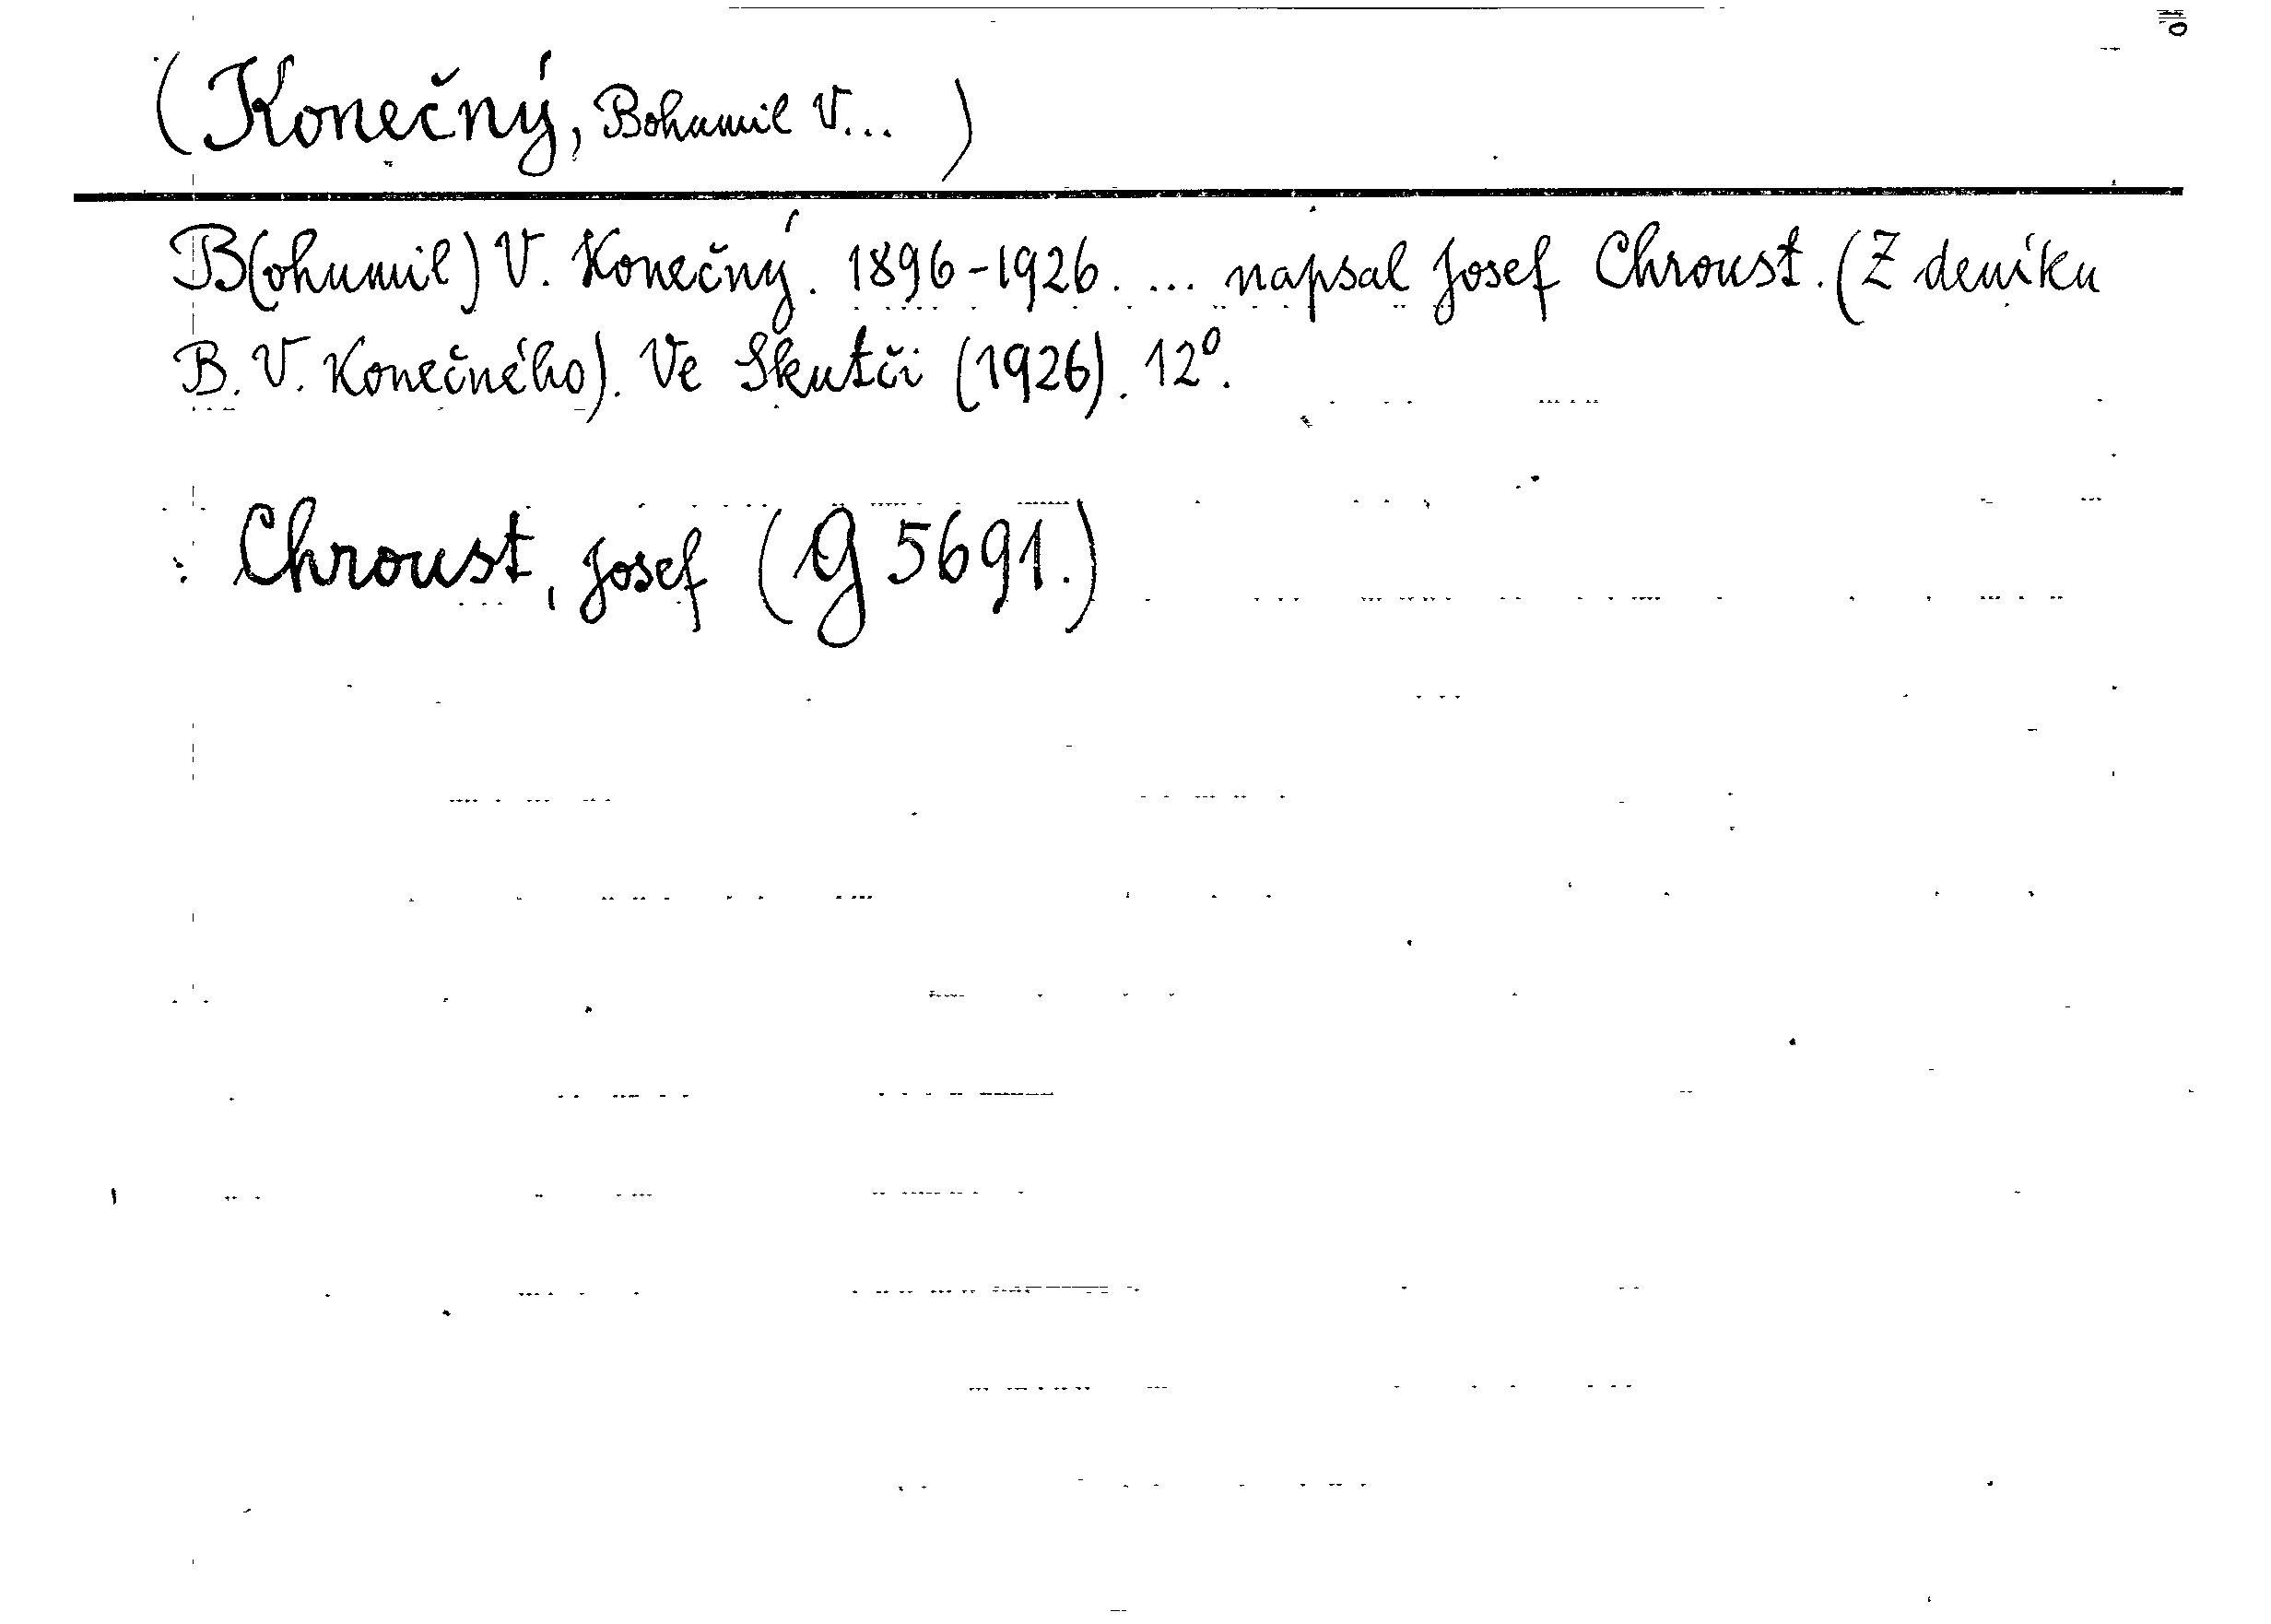 (Konečný, Bohumil V... )
B(ohumil) V. Konečný. 1896-1926. ... napsal Josef Chroust. (Z deníku
B. V. Konečného). Ve Skutči (1926). 12⁰.
Chroust, Josef (G 5691.)